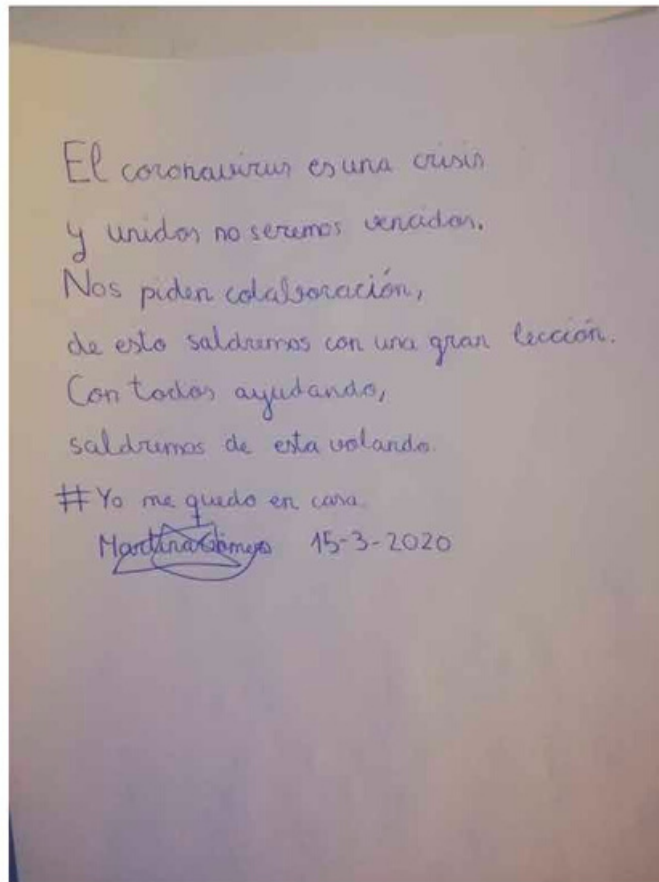 El coronavirus es una crisis
y unidos no seremos vencidos.
Nos piden colaboración,
de esto saldremos con una gran lección.
Con todos ayudando,
saldremos de esta volando.
#Yo me quedo en casa.
Martina Gómez 15-3-2020